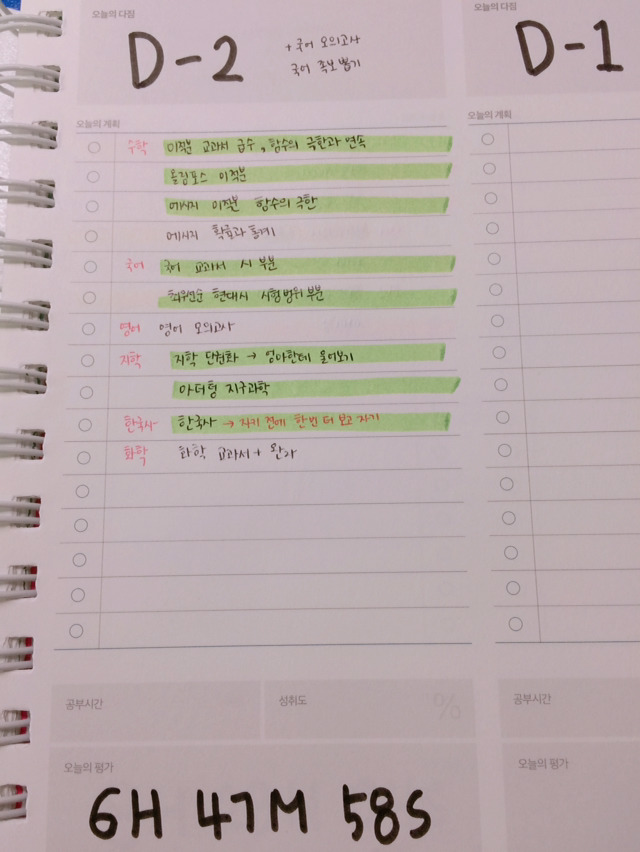 오늘의 다짐
D-2
+ 국어 모의고사
국어 족보 뽑기
오늘의 계획
수학 미적분 교과서 급수, 함수의 극한과 연속
올림포스 미적분
메시지 미적분 함수의 극한
메시지 확률과 통계
국어 국어 교과서 시 부분
최우선순 현대시 시험범위 부분
영어 영어 모의고사
지학 지학 단권화 → 엄마한테 물어보기
마더텅 지구과학
한국사 한국사 → 자기 전에 한번 더 보고 자기
화학 화학 교과서 + 완자
공부시간
성취도
%
오늘의 평가
6H 47M 58S
오늘의 다짐
D-1
오늘의 계획
공부시간
오늘의 평가